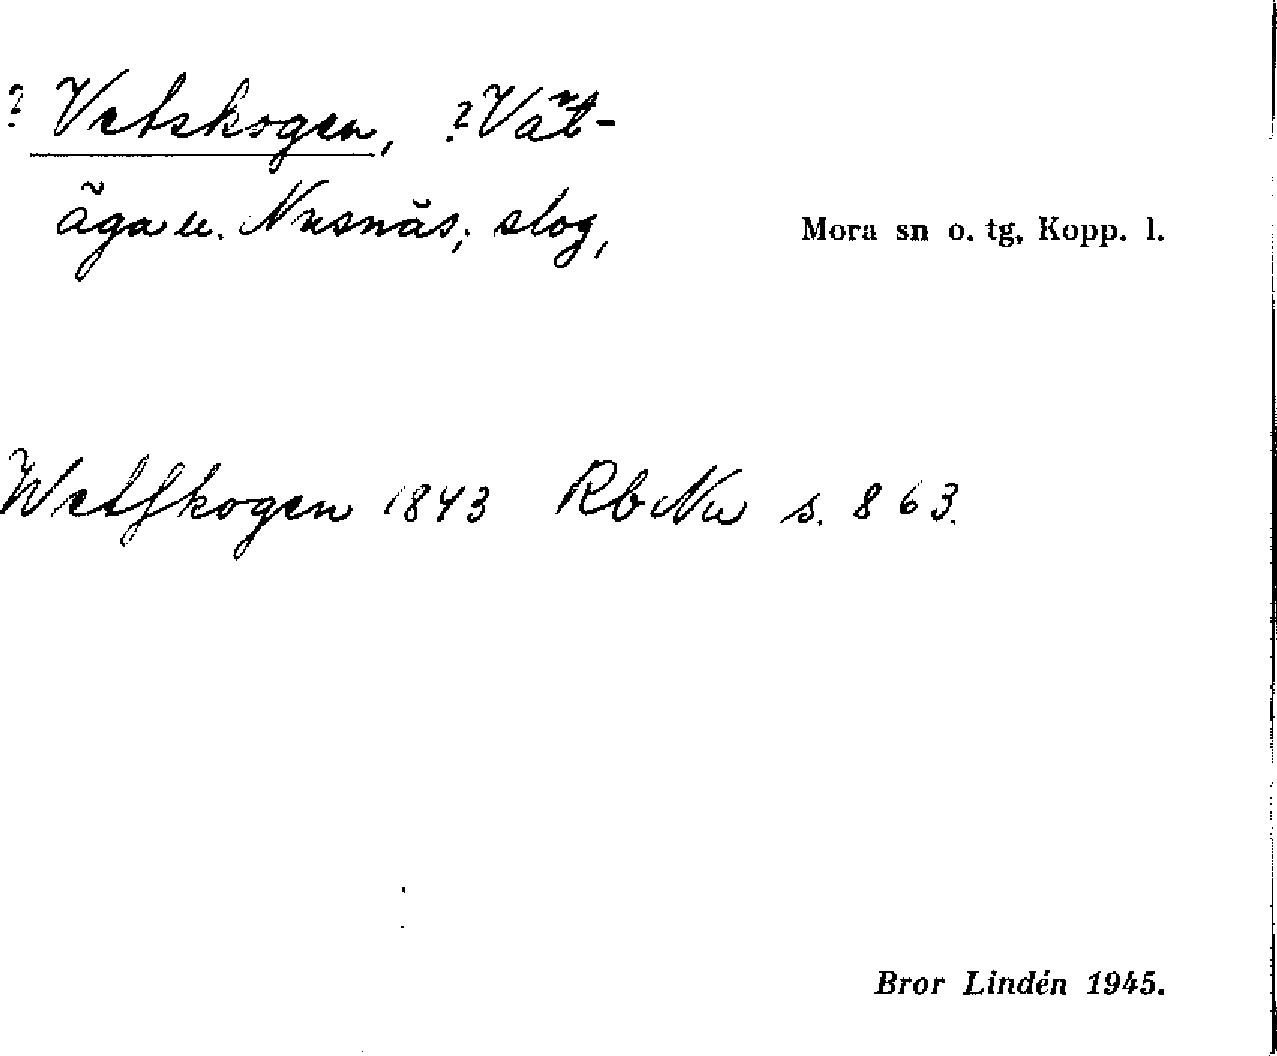 ? Vetskogen, ? Vät-
äga u. Nusnäs; slog,
Mora sn o. tg. Kopp. l.
Wetskogen 1843 Rb Nu s. 863.
Bror Lindén 1945.